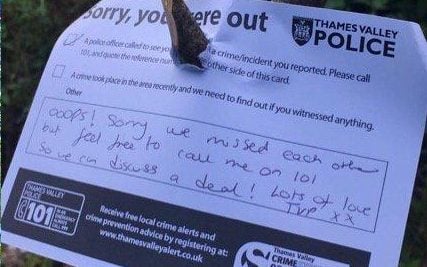 Sorry, you were out
THAMES VALLEY
POLICE
A police officer called to see you a crime/incident you reported. Please call
101, and quote the reference num other side of this card.
A crime took place in the area recently and we need to find out if you witnessed anything.
Other
OOPS! Sorry we missed each other
but feel free to call me on 101
so we can discuss a deal! Lots of love
TVP xx
THAMES VALLEY
POLICE
101
Receive free local crime alerts and
crime prevention advice by registering at:
www.thamesvalleyalert.co.uk
Thames Valley
CRIME